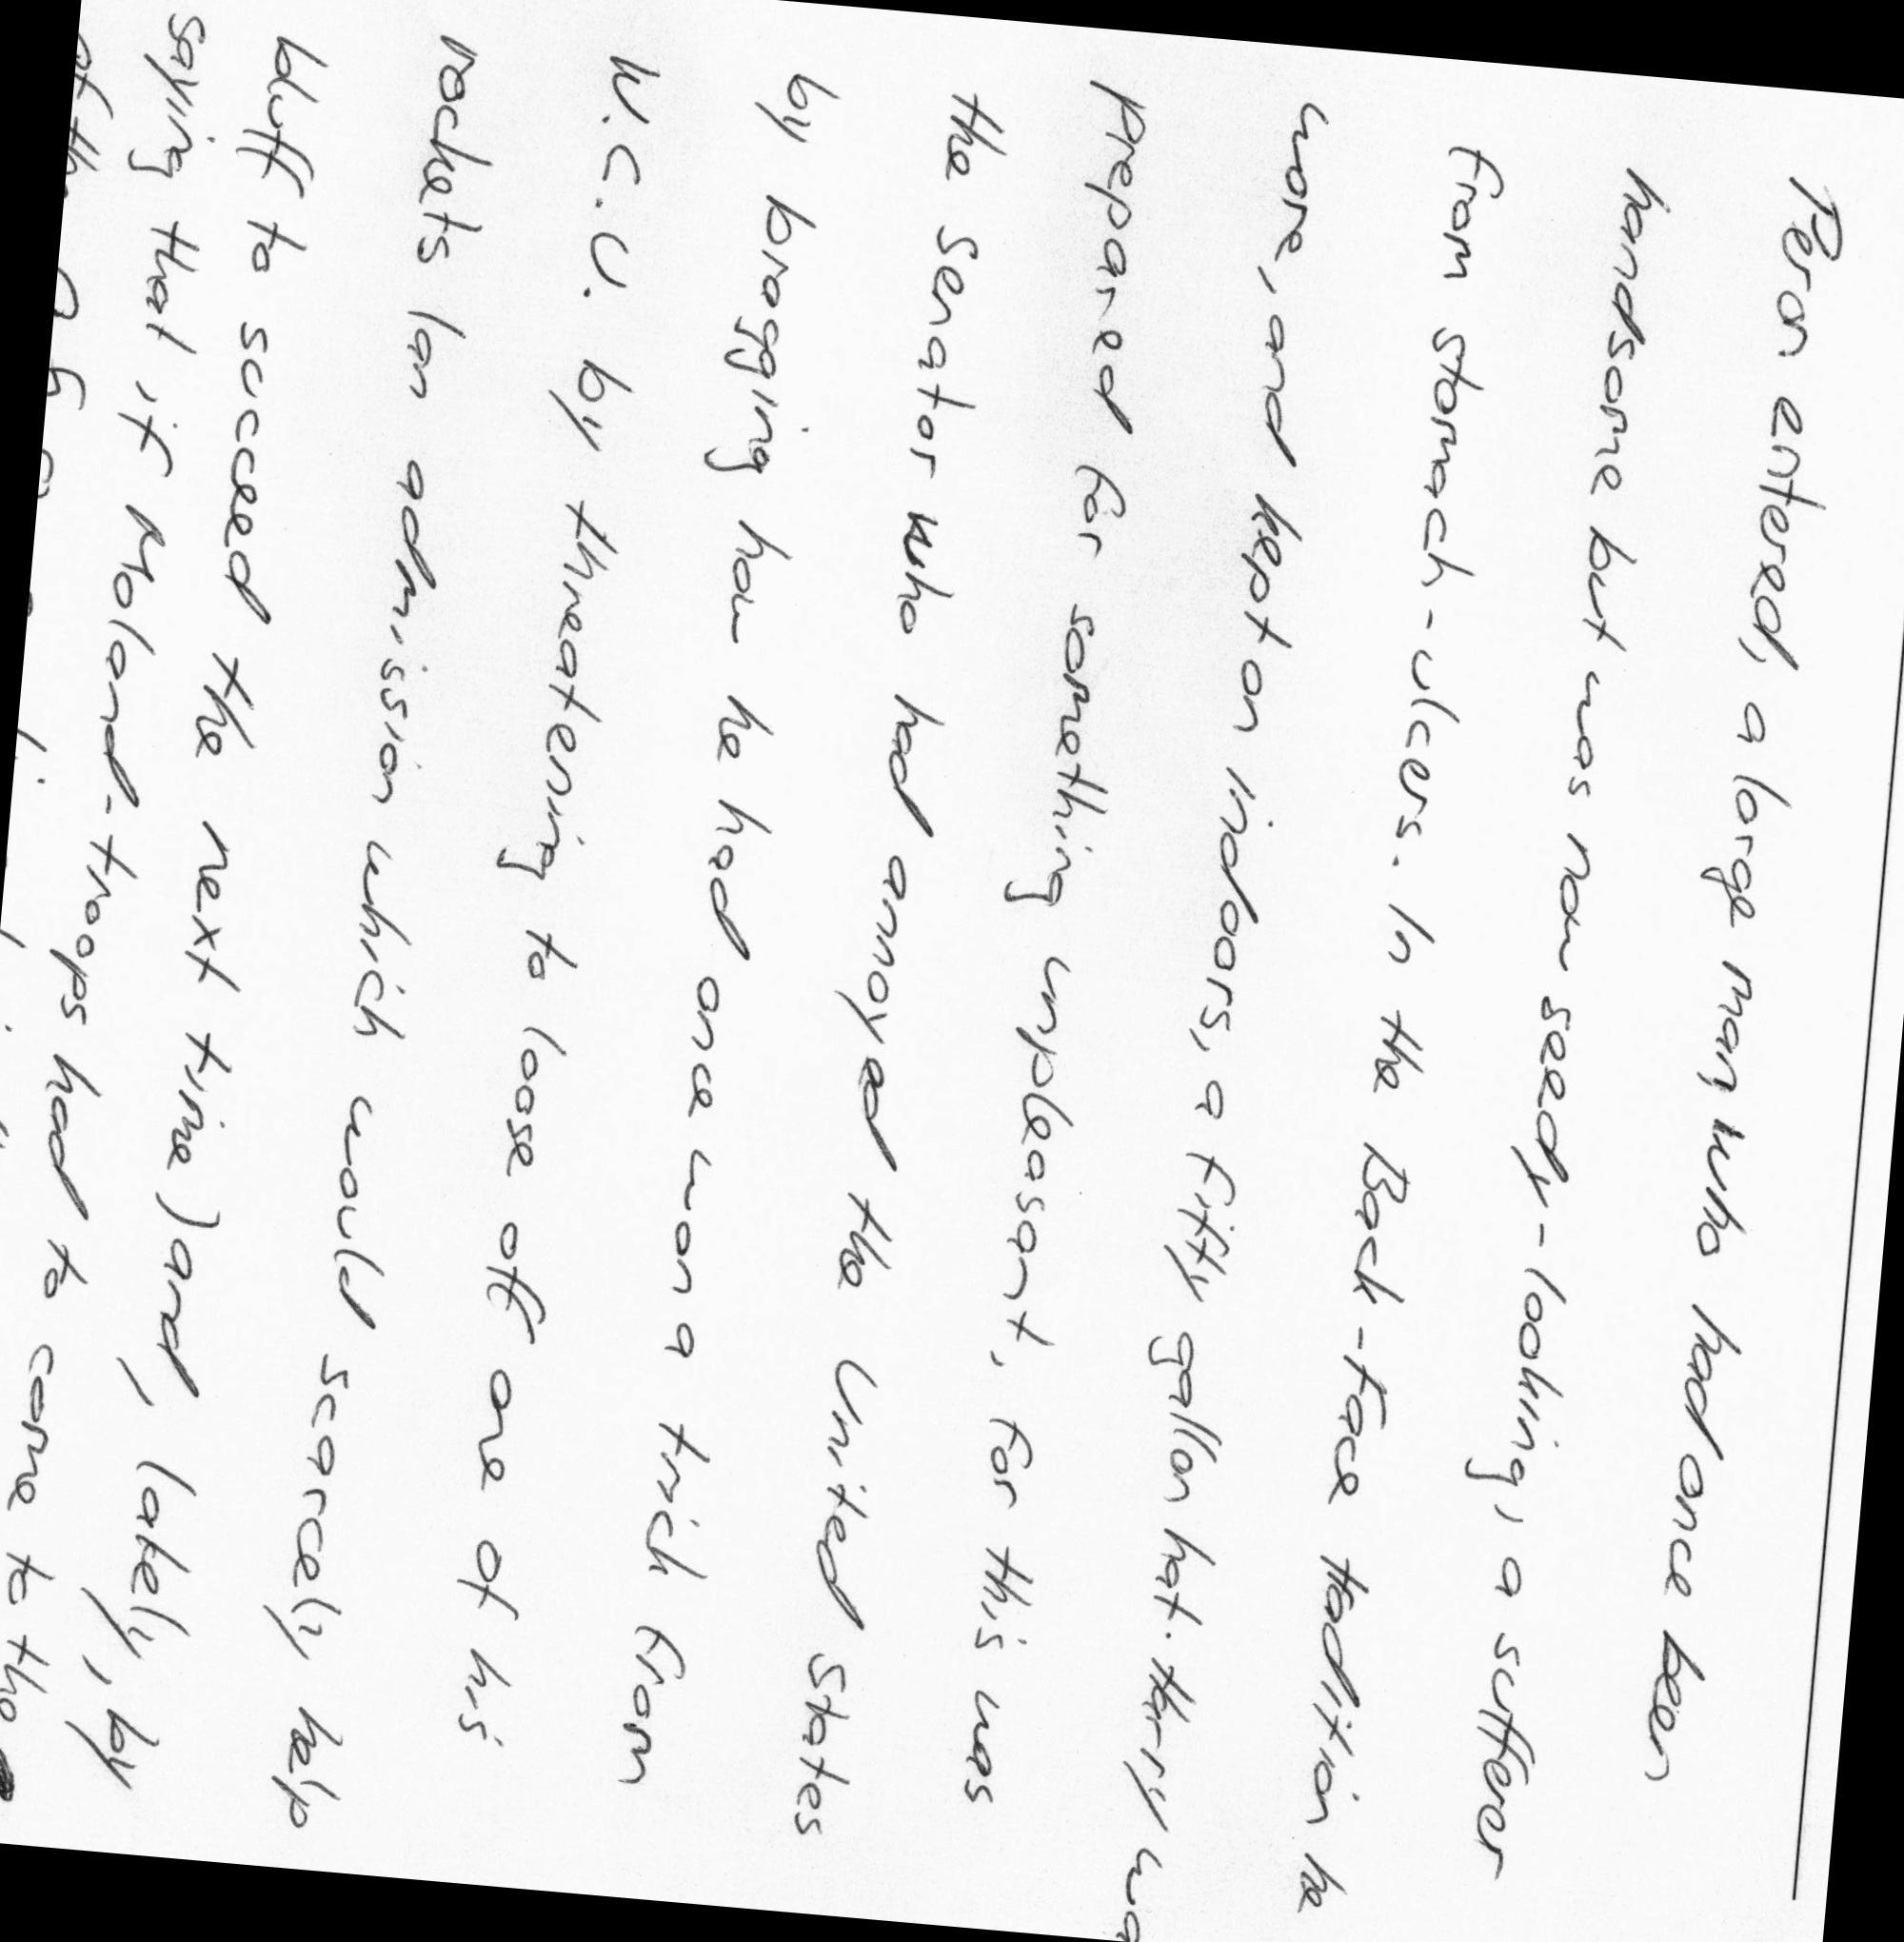 Peron entered, a large man, who had once been
handsome but was now seedy-looking, a sufferer
from stomach-ulcers. In the Back-Face tradition he
wore, and kept on indoors, a fifty gallon hat. Harry
prepared for something unpleasant, for this was
the senator who had annoyed the United States
by bragging how he had once won a trick from
W.C.U. by threatening to loose off one of his
rockets (an admission which would scarcely help
bluff to succeed the next time) and, lately, by
saying that if Moland-troops had to come to the